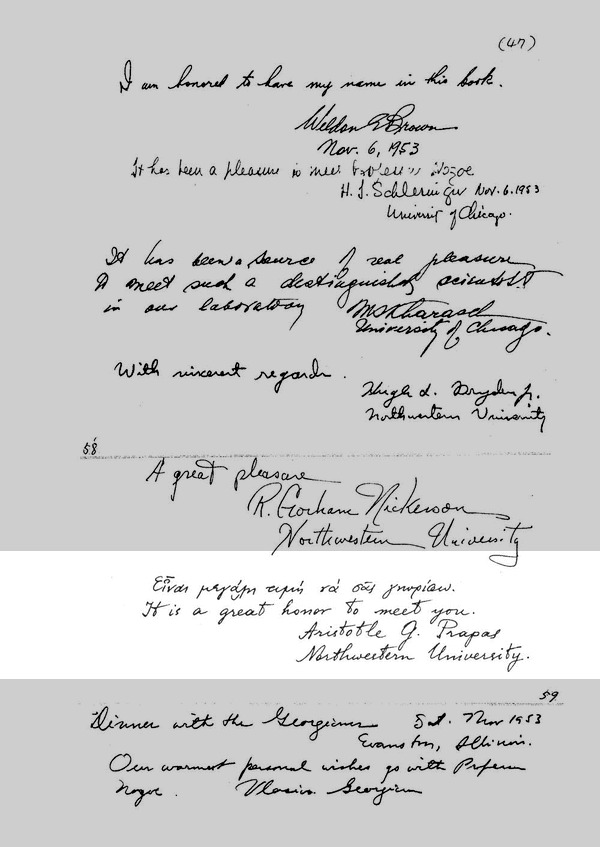 (47)
I am honored to have my name in this book.
Weldon G Brown
Nov. 6, 1953
It has been a pleasure to meet Professor Nozoe
H. I. Schlesinger Nov. 6. 1953
University of Chicago.
It has been a source of real pleasure
to meet such a distinguished scientist
in our laboratory MSKharasch
University of Chicago.
With sincerest regards.
Hugh L. Dryden Jr.
Northwestern University
58
A great pleasure
R. Gorham Nickerson
Northwestern University
Εἶναι μεγάλη τιμή νά σᾶς γνωρίσω.
It is a great honor to meet you.
Aristotle G. Prapas
Northwestern University.
59
Dinner with the Georgians Sat. Nov 1953
Evanston, Illinois.
Our warmest personal wishes go with Professor
Nozoe. Georgian